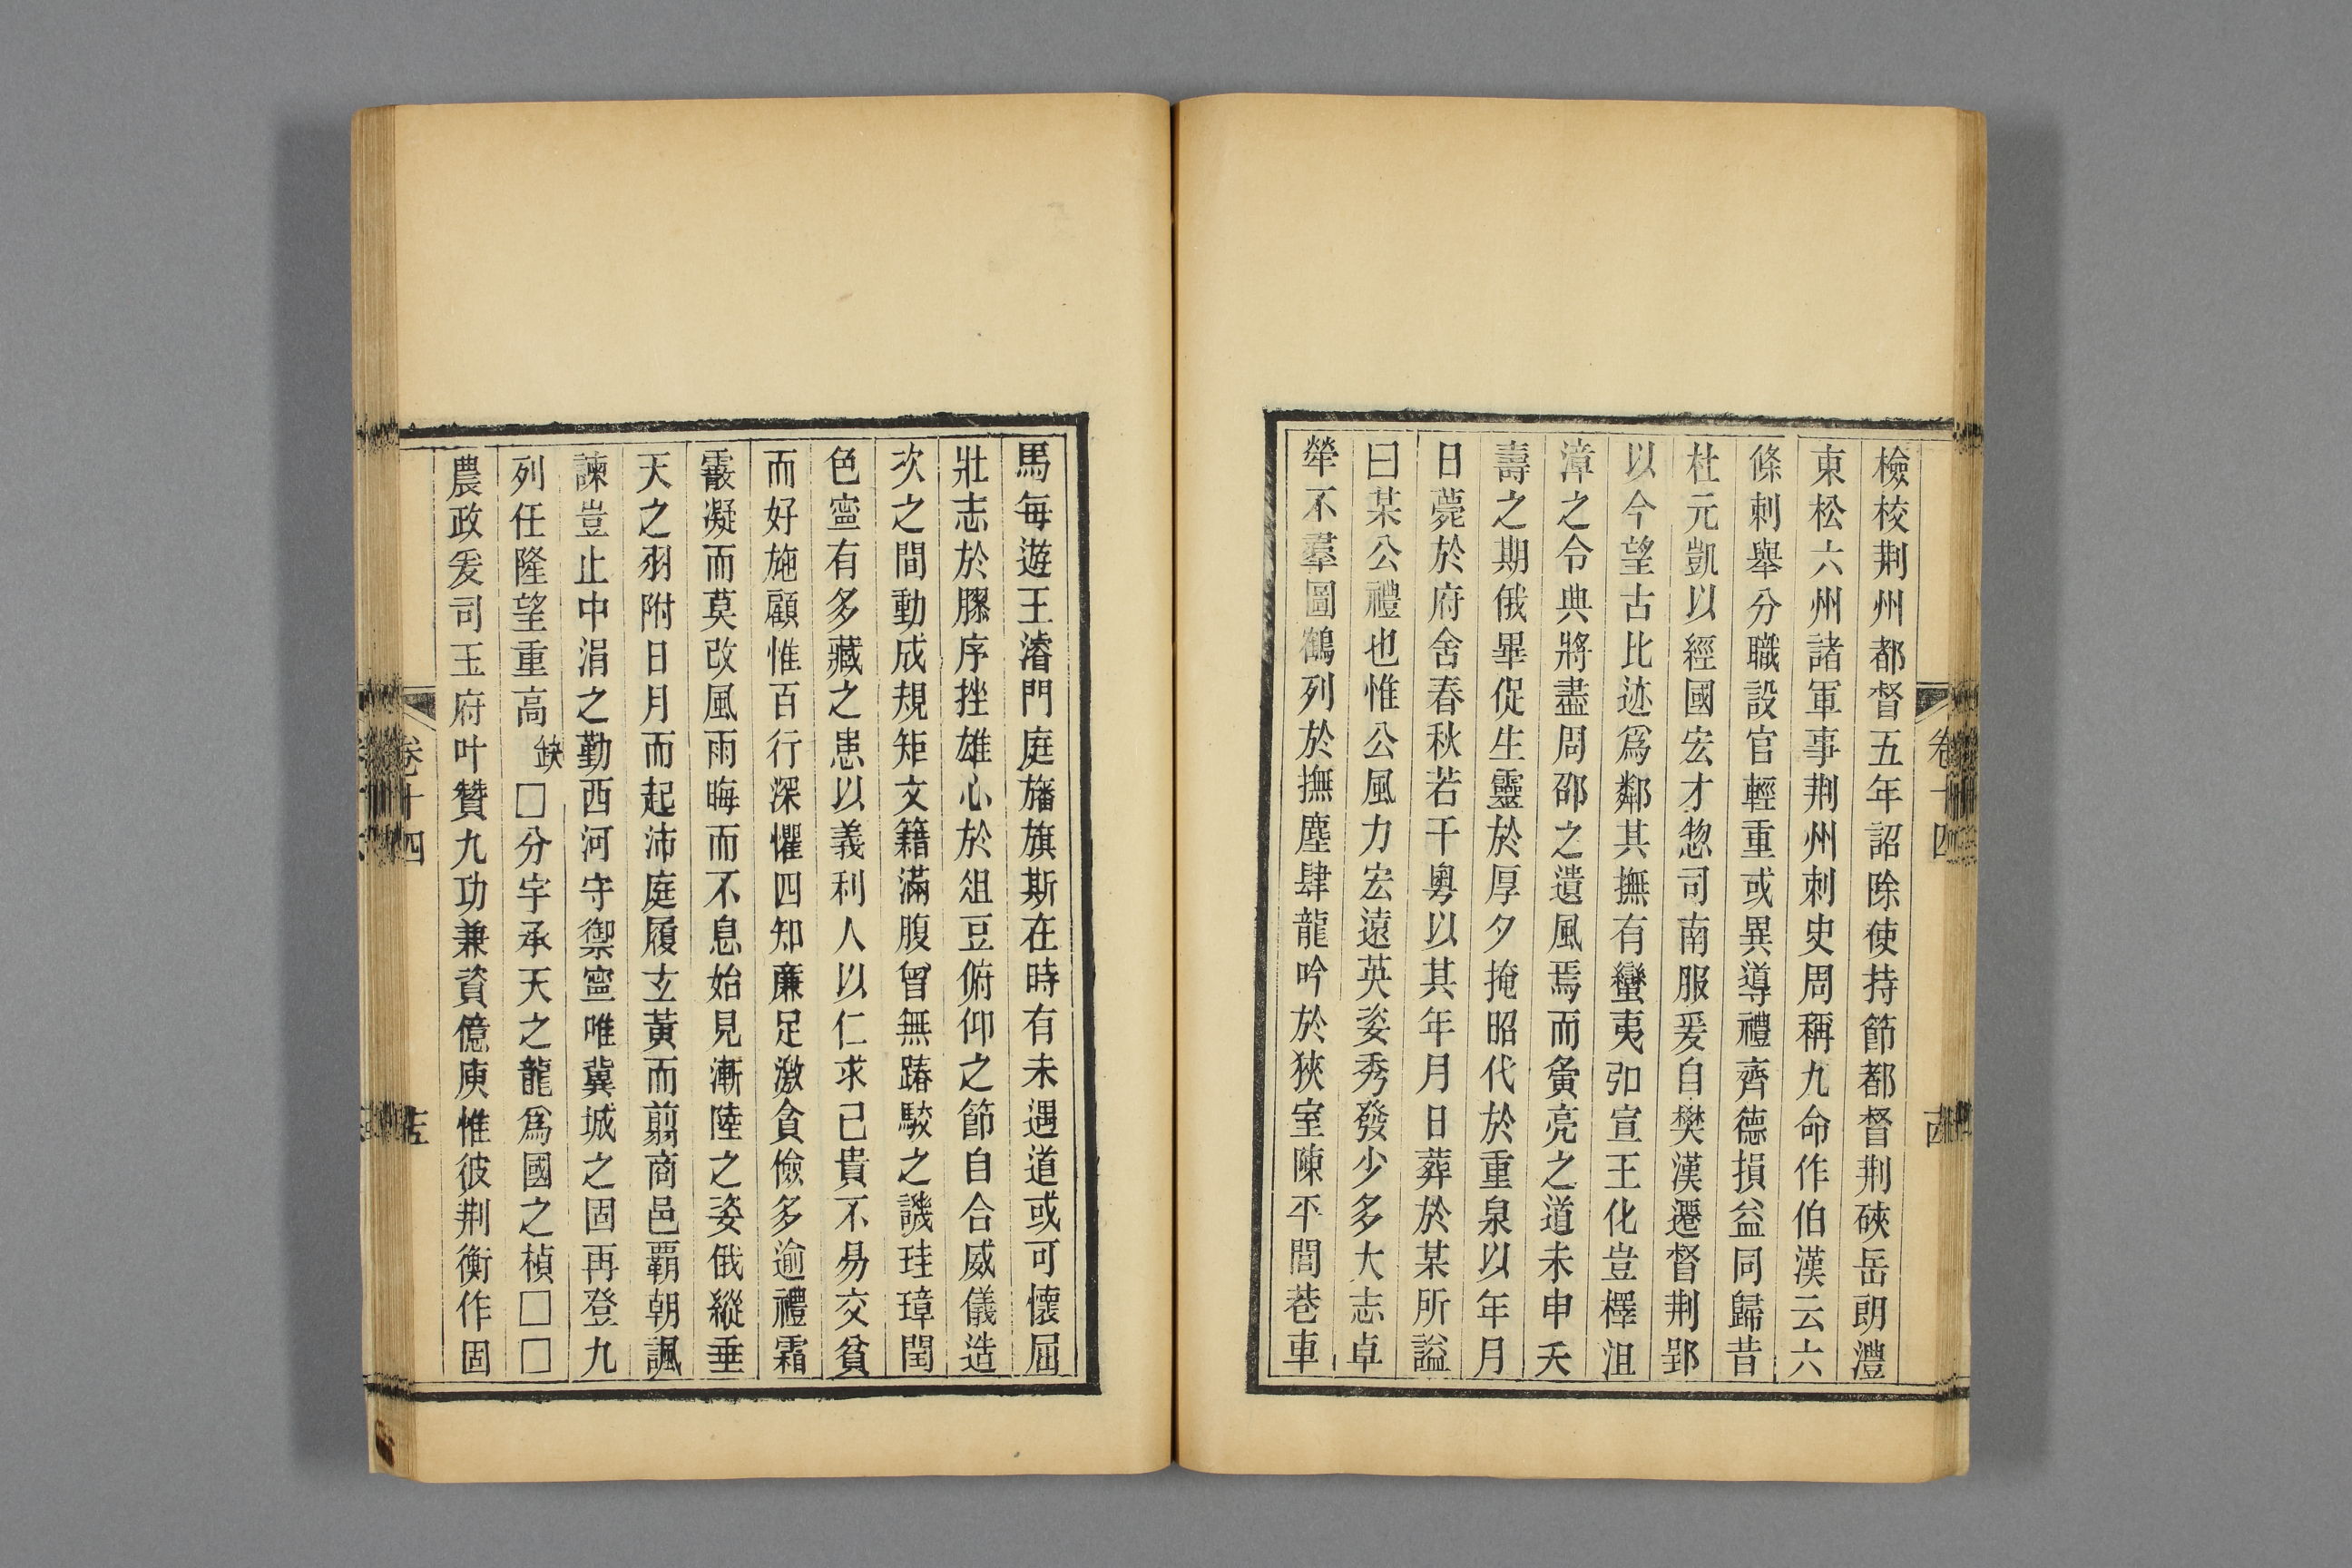 檢校荆州都督五年詔除使持節都督荆硤岳朗澧
東松六州諸軍事荆州刺史周稱九命作伯漢云六
條刺舉分職設官輕重或異導禮齊德損益同歸昔
杜元凱以經國宏才惣司南服爰自樊漢遷督荆郢
以今望古比迹爲鄰其撫有蠻夷弘宣王化豈檡沮
漳之令典將盡周邵之遺風焉而寅亮之道未申夭
壽之期俄畢促生靈於厚夕掩昭代於重泉以年月
日薨於府舍春秋若干粵以其年月日葬於某所謚
曰某公禮也惟公風力宏遠英姿秀發少多大志卓
犖不羣圖鶴列於撫塵肆龍吟於狹室陳平閭巷車
馬每遊王濬門庭旛旗斯在時有未遇道或可懷屈
壯志於膠序挫雄心於俎豆俯仰之節自合威儀造
次之間動成規矩文籍滿腹曾無踳駮之譏珪璋閏
色寍有多藏之患以義利人以仁求己貴不易交貧
而好施顧惟百行深懼四知廉足激貪儉多逾禮霜
霰凝而莫改風雨晦而不息始見漸陸之姿俄縱垂
天之羽附日月而起沛庭履玄黃而翦商邑覇朝諷
諫豈止中涓之勤西河守禦寍唯冀城之固再登九
列任隆望重高缺□分宇承天之龍爲國之楨□□
農政爰司玉府叶贊九功兼資億庾惟彼荆衡作固
卷十四
卷十四